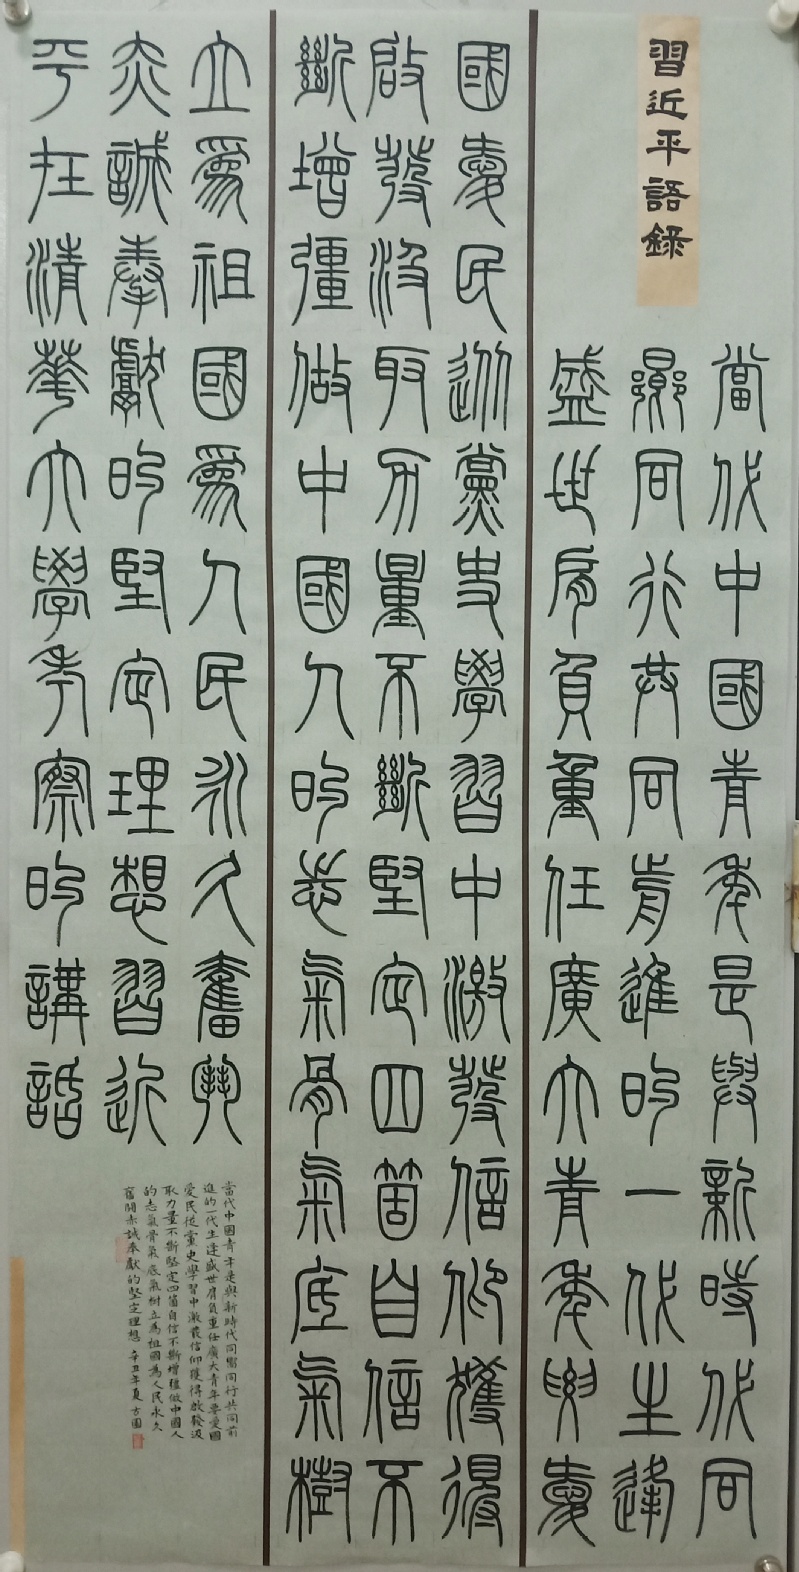 習近平語錄
當代中國青年是與新時代同
嚮同行共同前進的一代生逢
盛世肩負重任廣大青年要愛
國愛民從黨史學習中激發信仰獲得
啟發汲取力量不斷堅定四箇自信不
斷增彊做中國人的志氣骨氣底氣樹
立爲祖國爲人民永久奮鬥
赤誠奉獻的堅定理想習近
平在清華大學考察的講話
當代中國青年是與新時代同嚮同行共同前
進的一代生逢盛世肩負重任廣大青年要愛國
愛民從黨史學習中激發信仰獲得啟發汲
取力量不斷堅定四箇自信不斷增彊做中國人
的志氣骨氣底氣樹立為祖國為人民永久
奮鬥赤誠奉獻的堅定理想 辛丑年夏方圓